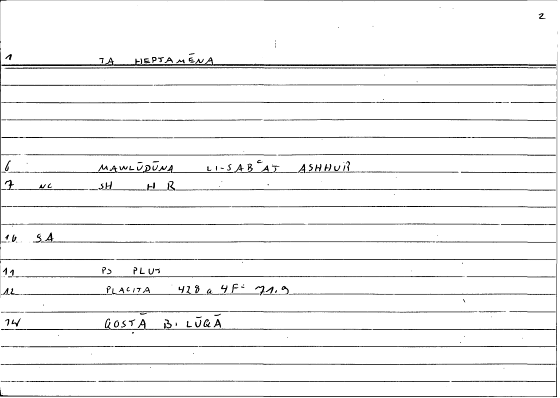 2
1 TA HEPTAMĒNA
6 MAWLŪDŪNA LI-SABʿAT ASHHUR
7 NC SH H R
10 SA
11 PS PLUT
12 PLACITA 428 a 4F= 71.9
14 QOSṬĀ B. LŪQĀ